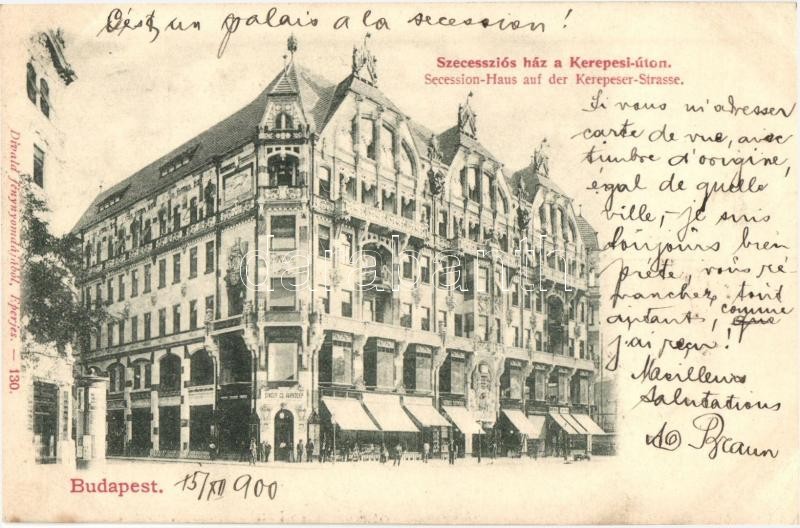 C'est un palais a la secession!
Szecessziós ház a Kerepesi-úton.
Secession-Haus auf der Kerepeser-Strasse.
Si vous m'adresser
carte de vue, avec
timbre d'origine,
égal de quelle
ville, je suis
toujours bien
prete, vous ré-
vancher, tout
autant, comme
que
j'ai reçu!
Meilleurs
Salutations
Braun
Divald fénynyomdájából, Eperjes. — 130.
darabanth
SINGER CO. VARRÓGÉP
Budapest. 15/XII 900